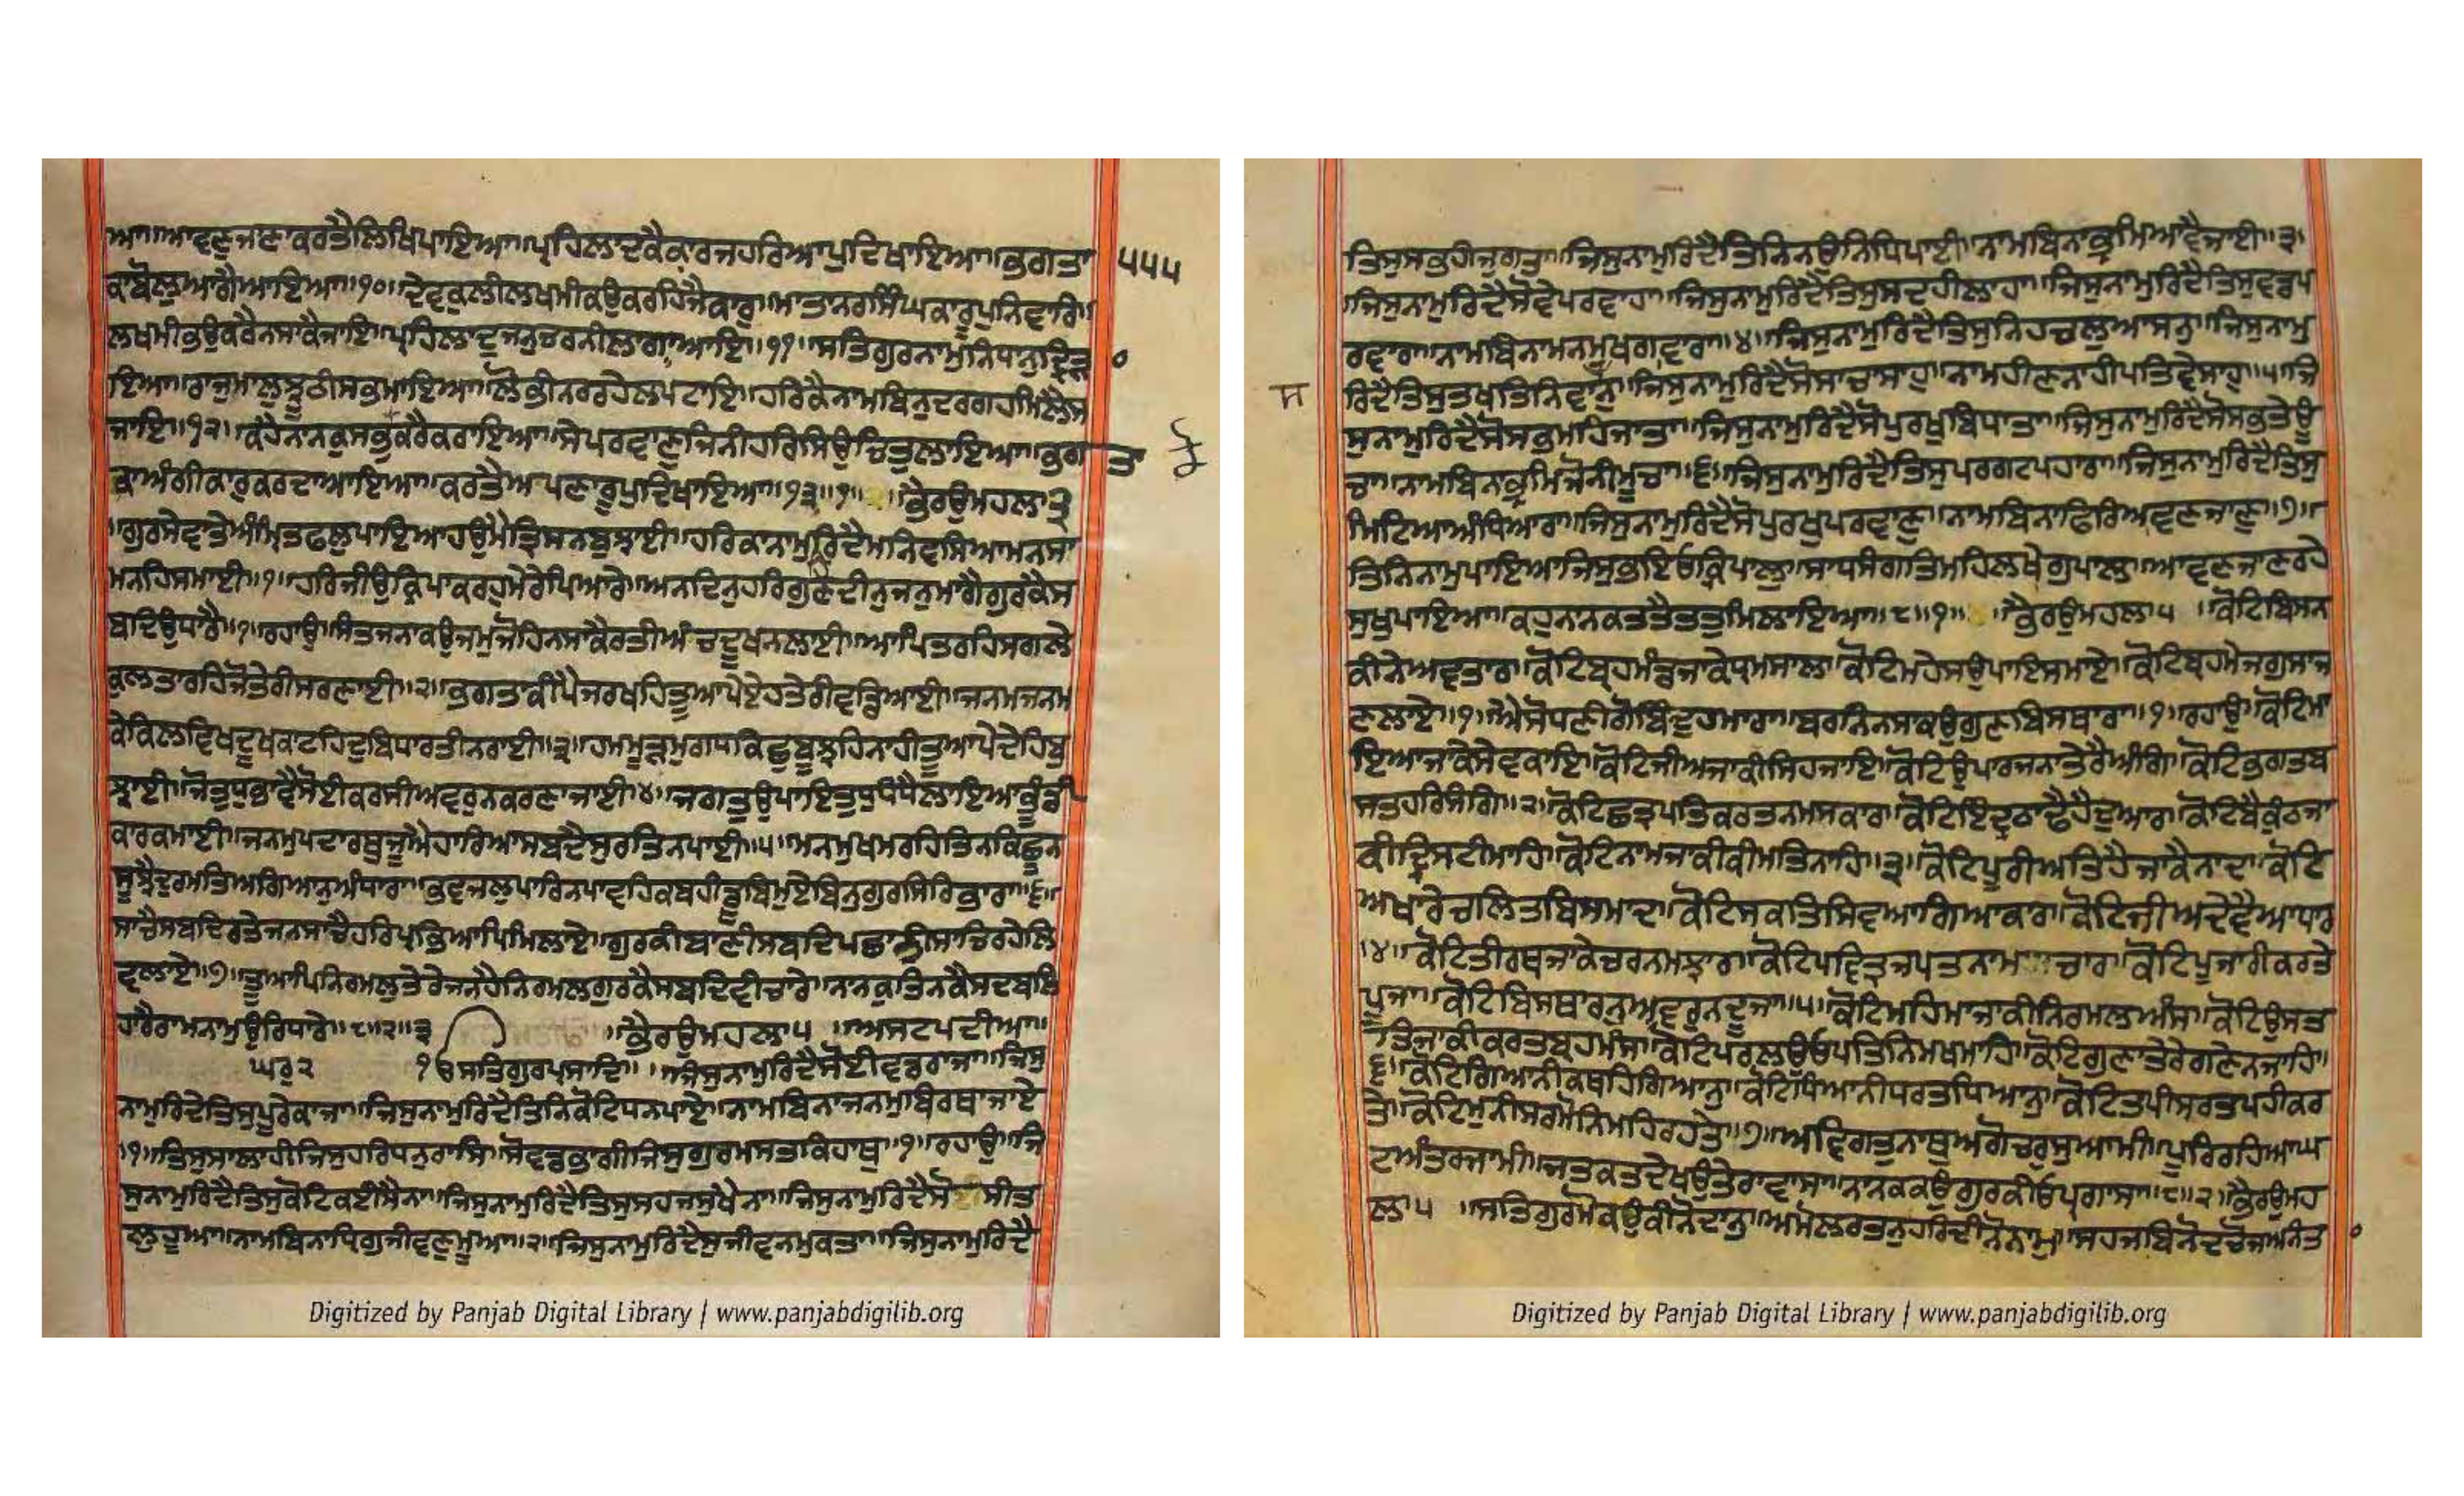 ਆ॥ਆਵਣੁਜਾਣਾਕਰਤੈਲਿਖਿਪਾਇਆ॥ਪ੍ਰਹਿਲਾਦਕੈਕਾਰਜਹਰਿਆਪੁਦਿਖਾਇਆ॥ਭਗਤਾ ੫੫੫
ਕਾਬੋਲੁਆਗੈਆਇਆ॥੧੦॥ਦੇਵਕੁਲੀਲਖਮੀਕਉਕਰਹਿਜੈਕਾਰੁ॥ਮਾਤਾਨਰਸਿੰਘਕਾਰੂਪੁਨਿਵਾਰਿ॥
ਲਖਮੀਭਉਕਰੈਨਸਾਕੈਜਾਇ॥ਪ੍ਰਹਿਲਾਦੁਜਨੁਚਰਨੀਲਾਗਾਆਇ॥੧੧॥ਸਤਿਗੁਰਨਾਮੁਨਿਧਾਨੁਦ੍ਰਿੜਾ
ਇਆ॥ਰਾਜੁਮਾਲੁਝੂਠੀਸਭਮਾਇਆ॥ਲੋਭੀਨਰਰਹੇਲਪਟਾਇ॥ਹਰਿਕੈਨਾਮਬਿਨੁਦਰਗਹਮਿਲੈਸ
ਜਾਇ॥੧੨॥ਕਹੈਨਾਨਕੁਸਭੁਕੋਕਰੈਕਰਾਇਆ॥ਸੇਪਰਵਾਣੁਜਿਨੀਹਰਿਸਿਉਚਿਤੁਲਾਇਆ॥ਭਗਤਾ
ਕਾਅੰਗੀਕਾਰੁਕਰਦਾਆਇਆ॥ਕਰਤੈਅਪਣਾਰੂਪੁਦਿਖਾਇਆ॥੧੩॥੧॥ ਭੈਰਉਮਹਲਾ੩
॥ਗੁਰਸੇਵਾਤੇਅੰਮ੍ਰਿਤਫਲੁਪਾਇਆਹਉਮੈਤ੍ਰਿਸਨਬੁਝਾਈ॥ਹਰਿਕਾਨਾਮੁਰਿਦੈਮਨਿਵਸਿਆਮਨਸਾ
ਮਨਹਿਸਮਾਈ॥੧॥ਹਰਿਜੀਉਕ੍ਰਿਪਾਕਰਹੁਮੇਰੇਪਿਆਰੇ॥ਅਨਦਿਨੁਹਰਿਗੁਣਦੀਨੁਜਨੁਮਾਗੈਗੁਰਕੈਸ
ਬਦਿਉਧਾਰੇ॥੧॥ਰਹਾਉ॥ਸੰਤਜਨਾਕਉਜਮੁਜੋਹਿਨਸਾਕੈਰਤੀਅੰਚਦੂਖਨਲਾਈ॥ਆਪਿਤਰਹਿਸਗਲੇ
ਕੁਲਤਾਰਹਿਜੋਤੇਰੀਸਰਣਾਈ॥੨॥ਭਗਤਾਕੀਪੈਜਰਖਹਿਤੂਆਪੇਏਹਤੇਰੀਵਡਿਆਈ॥ਜਨਮਜਨਮ
ਕੇਕਿਲਵਿਖਦੁਖਕਾਟਹਿਦੁਬਿਧਾਰਤੀਨਰਾਈ॥੩॥ਹਮਮੂੜਮੁਗਧਕਿਛੁਬੂਝਹਿਨਾਹੀਤੂਆਪੇਦੇਹਿਬੁ
ਝਾਈ॥ਜੋਤੁਧੁਭਾਵੈਸੋਈਕਰਸੀਅਵਰੁਨਕਰਣਾਜਾਈ॥੪॥ਜਗਤੁਉਪਾਇਤੁਧੁਧੰਧੈਲਾਇਆਭੂੰਡੀ
ਕਾਰਕਮਾਈ॥ਜਨਮੁਪਦਾਰਥੁਜੂਐਹਾਰਿਆਸਬਦੈਸੁਰਤਿਨਪਾਈ॥੫॥ਮਨਮੁਖਿਮਰਹਿਤਿਨਕਿਛੂਨ
ਸੂਝੈਦੁਰਮਤਿਅਗਿਆਨੁਅੰਧਾਰਾ॥ਭਵਜਲੁਪਾਰਿਨਪਾਵਹਿਕਬਹੀਡੂਬਿਮੁਏਬਿਨੁਗੁਰਸਿਰਿਭਾਰਾ॥੬॥
ਸਾਚੈਸਬਦਿਰਤੇਜਨਸਾਚੇਹਰਿਪ੍ਰਭਿਆਪਿਮਿਲਾਏ॥ਗੁਰਕੀਬਾਣੀਸਬਦਿਪਛਾਤੀਸਾਚਿਰਹੇਲਿ
ਵਲਾਏ॥੭॥ਤੂਆਪਿਨਿਰਮਲੁਤੇਰੇਜਨਹੈਨਿਰਮਲਗੁਰਕੈਸਬਦਿਵੀਚਾਰੇ॥ਨਾਨਕੁਤਿਨਕੈਸਦਬਲਿ
ਹਾਰੈਰਾਮਨਾਮੁਉਰਿਧਾਰੇ॥੮॥੨॥੩ ॥ਭੈਰਉਮਹਲਾ੫ ॥ਅਸਟਪਦੀਆ॥
ਘਰੁ੨ ੧ਓਸਤਿਗੁਰਪ੍ਰਸਾਦਿ॥ ॥ਜਿਸੁਨਾਮੁਰਿਦੈਸੋਈਵਡਰਾਜਾ॥ਜਿਸੁ
ਨਾਮੁਰਿਦੈਤਿਸੁਪੂਰੇਕਾਜਾ॥ਜਿਸੁਨਾਮੁਰਿਦੈਤਿਨਿਕੋਟਿਧਨਪਾਏ॥ਨਾਮਬਿਨਾਜਨਮੁਬਿਰਥਾਜਾਏ
॥੧॥ਤਿਸੁਸਾਲਾਹੀਜਿਸੁਹਰਿਧਨੁਰਾਸਿ॥ਸੋਵਡਭਾਗੀਜਿਸੁਗੁਰਮਸਤਕਿਹਾਥੁ॥੧॥ਰਹਾਉ॥ਜਿ
ਸੁਨਾਮੁਰਿਦੈਤਿਸੁਕੋਟਿਕਈਸੈਨਾ॥ਜਿਸੁਨਾਮੁਰਿਦੈਤਿਸੁਸਹਜਸੁਖੈਨਾ॥ਜਿਸੁਨਾਮੁਰਿਦੈਸੋ ਸੀਤ
ਲੁਹੂਆ॥ਨਾਮਬਿਨਾਧ੍ਰਿਗੁਜੀਵਣੁਮੂਆ॥੨॥ਜਿਸੁਨਾਮੁਰਿਦੈਸੁਜੀਵਨਮੁਕਤਾ॥ਜਿਸੁਨਾਮੁਰਿਦੈ
Digitized by Panjab Digital Library | www.panjabdigilib.org
ਤਿਸੁਸਭਹੀਜੁਗਤਾ॥ਜਿਸੁਨਾਮੁਰਿਦੈਤਿਨਿਨਉਨਿਧਿਪਾਈ॥ਨਾਮਬਿਨਾਭ੍ਰਮਿਆਵੈਜਾਈ॥੩॥
॥ਜਿਸੁਨਾਮੁਰਿਦੈਸੋਵੇਪਰਵਾਹਾ॥ਜਿਸੁਨਾਮੁਰਿਦੈਤਿਸੁਸਦਹੀਲਾਹਾ॥ਜਿਸੁਨਾਮੁਰਿਦੈਤਿਸੁਵਡਪ
ਰਵਾਰਾ॥ਨਾਮਬਿਨਾਮਨਮੁਖਗਾਵਾਰਾ॥੪॥ਜਿਸੁਨਾਮੁਰਿਦੈਤਿਸੁਨਿਹਚਲੁਆਸਨੁ॥ਜਿਸੁਨਾਮੁ
ਰਿਦੈਤਿਸੁਤਖਤਿਨਿਵਾਸਨੁ॥ਜਿਸੁਨਾਮੁਰਿਦੈਸੋਸਾਚਾਸਾਹੁ॥ਨਾਮਹੀਣਨਾਹੀਪਤਿਵੇਸਾਹੁ॥੫॥ਜਿ
ਸੁਨਾਮੁਰਿਦੈਸੋਸਭਮਹਿਜਾਤਾ॥ਜਿਸੁਨਾਮੁਰਿਦੈਸੋਪੁਰਖੁਬਿਧਾਤਾ॥ਜਿਸੁਨਾਮੁਰਿਦੈਸੋਸਭਤੇਊ
ਚਾ॥ਨਾਮਬਿਨਾਭ੍ਰਮਿਜੋਨੀਮੂਚਾ॥੬॥ਜਿਸੁਨਾਮੁਰਿਦੈਤਿਸੁਪਰਗਟਪਹਾਰਾ॥ਜਿਸੁਨਾਮੁਰਿਦੈਤਿਸੁ
ਮਿਟਿਆਅੰਧਿਆਰਾ॥ਜਿਸੁਨਾਮੁਰਿਦੈਸੋਪੁਰਖੁਪਰਵਾਣੁ॥ਨਾਮਬਿਨਾਫਿਰਿਆਵਣਜਾਣੁ॥੭॥
ਤਿਨਿਨਾਮੁਪਾਇਆਜਿਸੁਭਇਓਕ੍ਰਿਪਾਲਾ॥ਸਾਧਸੰਗਤਿਮਹਿਲਖੇਗੁਪਾਲਾ॥ਆਵਣਜਾਣਰਹੇ
ਸੁਖੁਪਾਇਆ॥ਕਹੁਨਾਨਕਤਤੈਤਤੁਮਿਲਾਇਆ॥੮॥੧॥ ॥ਭੈਰਉਮਹਲਾ੫ ॥ਕੋਟਿਬਿਸਨ
ਕੀਨੇਅਵਤਾਰ॥ਕੋਟਿਬ੍ਰਹਮੰਡਜਾਕੇਧ੍ਰਮਸਾਲ॥ਕੋਟਿਮਹੇਸਉਪਾਇਸਮਾਏ॥ਕੋਟਿਬ੍ਰਹਮੇਜਗੁਸਾਜ
ਣਲਾਏ॥੧॥ਐਸੋਧਣੀਗੋਬਿੰਦੁਹਮਾਰਾ॥ਬਰਨਿਨਸਾਕਉਗੁਣਬਿਸਥਾਰਾ॥੧॥ਰਹਾਉ॥ਕੋਟਿਮਾ
ਇਆਜਾਕੈਸੇਵਕਾਇ॥ਕੋਟਿਜੀਅਜਾਕੀਸਿਹਜਾਇ॥ਕੋਟਿਉਪਾਰਜਨਾਤੇਰੈਅੰਗਿ॥ਕੋਟਿਭਗਤਬ
ਸਤਹਰਿਸੰਗਿ॥੨॥ਕੋਟਿਛਤ੍ਰਪਤਿਕਰਤਨਮਸਕਾਰ॥ਕੋਟਿਇੰਦ੍ਰਠਾਢੇਹੈਦੁਆਰ॥ਕੋਟਿਬੈਕੁੰਠਜਾ
ਕੀਦ੍ਰਿਸਟੀਮਾਹਿ॥ਕੋਟਿਨਾਮਜਾਕੀਕੀਮਤਿਨਾਹਿ॥੩॥ਕੋਟਿਪੂਰੀਅਤਿਹੈਜਾਕੈਨਾਦ॥ਕੋਟਿ
ਅਖਾਰੇਚਲਿਤਬਿਸਮਾਦ॥ਕੋਟਿਸਕਤਿਸਿਵਆਗਿਆਕਾਰ॥ਕੋਟਿਜੀਅਦੇਵੈਆਧਾਰ
॥੪॥ਕੋਟਿਤੀਰਥਜਾਕੇਚਰਨਮਝਾਰ॥ਕੋਟਿਪਵਿਤ੍ਰਜਪਤਨਾਮ ਚਾਰ॥ਕੋਟਿਪੂਜਾਰੀਕਰਤੇ
ਪੂਜਾ॥ਕੋਟਿਬਿਸਥਾਰਨੁਅਵਰੁਨਦੂਜਾ॥੫॥ਕੋਟਿਮਹਿਮਾਜਾਕੀਨਿਰਮਲਹੰਸ॥ਕੋਟਿਉਸਤ
ਤਿਜਾਕੀਕਰਤਬ੍ਰਹਮੰਸ॥ਕੋਟਿਪਰਲਉਓਪਤਿਨਿਮਖਮਾਹਿ॥ਕੋਟਿਗੁਣਾਤੇਰੇਗਣੇਨਜਾਹਿ॥
੬॥ਕੋਟਿਗਿਆਨੀਕਥਹਿਗਿਆਨੁ॥ਕੋਟਿਧਿਆਨੀਧਰਤਧਿਆਨੁ॥ਕੋਟਿਤਪੀਸਰਤਪਹੀਕਰ
ਤੇ॥ਕੋਟਿਮੁਨੀਸਰਮੋਨਿਮਹਿਰਹਤੇ॥੭॥ਅਵਿਗਤੁਨਾਥੁਅਗੋਚਰੁਸੁਆਮੀ॥ਪੂਰਿਰਹਿਆਘ
ਟਅੰਤਰਜਾਮੀ॥ਜਤਕਤਦੇਖਉਤੇਰਾਵਾਸਾ॥ਨਾਨਕਕਉਗੁਰਿਕੀਓਪ੍ਰਗਾਸਾ॥੮॥੨॥ਭੈਰਉਮਹ
ਲਾ੫ ॥ਸਤਿਗੁਰਮੋਕਉਕੀਨੋਦਾਨੁ॥ਅਮੋਲਰਤਨੁਹਰਿਦੀਨੋਨਾਮੁ॥ਸਹਜਬਿਨੋਦਚੋਜਆਨੰਤ
Digitized by Panjab Digital Library | www.panjabdigilib.org